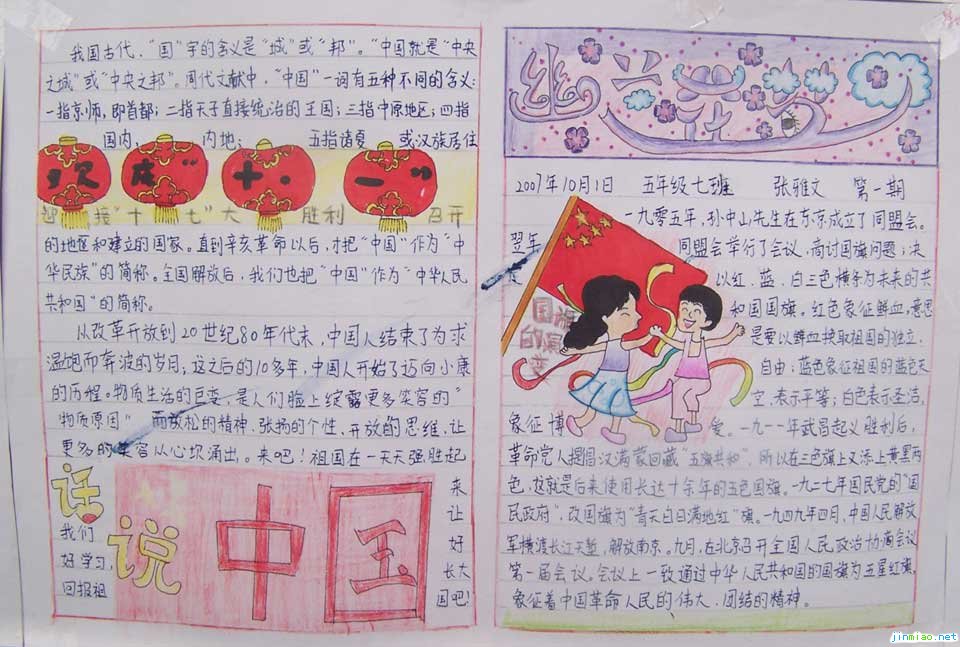 我国古代，“国”字的含义是“城”或“邦”。“中国就是“中央
之城”或“中央之邦”。周代文献中，“中国”一词有五种不同的含义：
一指京师，即首都；二指天子直接统治的王国；三指中原地区；四指
国内、内地；五指诸夏或汉族居住
“欢庆“十·一”
迎接“十七”大胜利召开
的地区和建立的国家。直到辛亥革命以后，才把“中国”作为“中
华民族”的简称。全国解放后，我们也把“中国”作为“中华人民
共和国”的简称。
从改革开放到20世纪80年代末，中国人结束了为求
温饱而奔波的岁月；这之后的10多年，中国人开始了迈向小康
的历程。物质生活的巨变，是人们脸上绽露更多笑容的“
物质原因” 而放松的精神、张扬的个性、开放的思维，让
更多的笑容从心坎涌出。来吧！祖国在一天天强胜起
来
让
我们
好
好学习，
长大
回报祖
国吧！
话说中国
2007年10月1日 五年级七班 张雅文 第一期
一九零五年，孙中山先生在东京成立了同盟会。
翌年 同盟会举行了会议，商讨国旗问题；决
定 以红、蓝、白三色横条为未来的共
和国国旗。红色象征鲜血，意思
是要以鲜血换取祖国的独立，
自由；蓝色象征祖国的蓝色天
空，表示平等；白色表示圣洁，
国旗的演变
象征博爱。一九一一年武昌起义胜利后，
革命党人提倡汉满蒙回藏“五族共和”，所以在三色旗上又添上黄黑两
色，这就是后来使用长达十余年的五色国旗。一九二七年国民党的“国
民政府”，改国旗为“青天白日满地红”旗。一九四九年四月，中国人民解放
军横渡长江天堑，解放南京。九月，在北京召开全国人民政治协商会议
第一届会议。会议上一致通过中华人民共和国的国旗为五星红旗，
象征着中国革命人民的伟大、团结的精神。
jinmiao.net